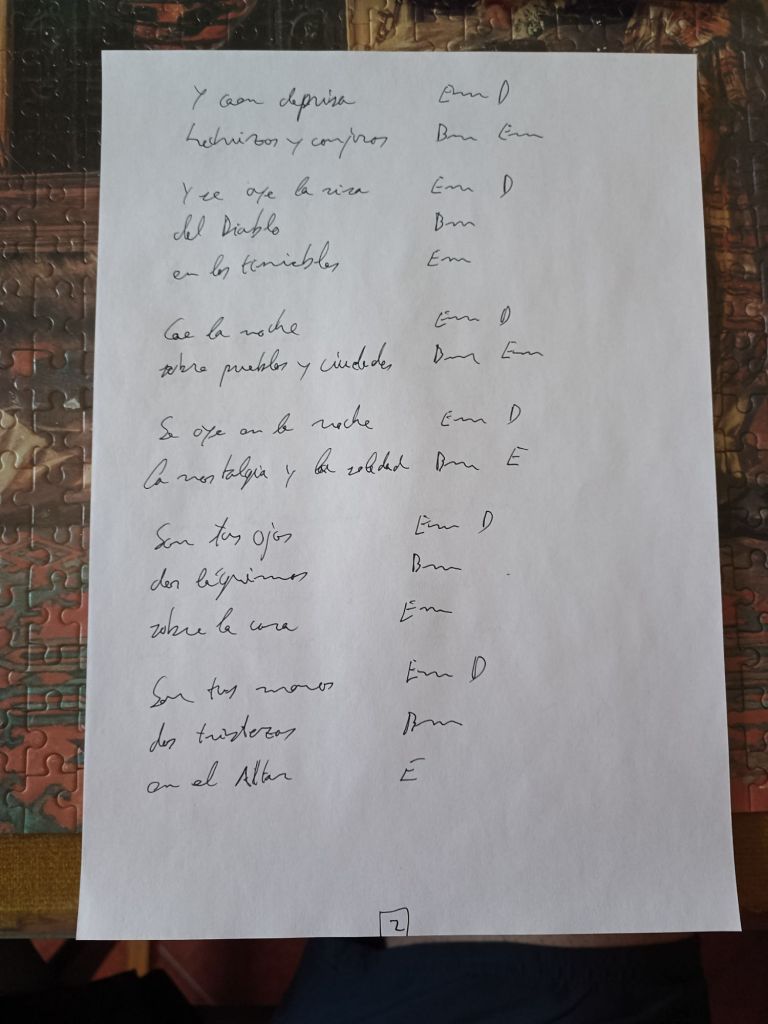 Y caen deprisa Em D
hechizos y conjuros Bm Em
Y se oye la risa Em D
del Diablo Bm
en las tinieblas Em
Cae la noche Em D
sobre pueblos y ciudades Bm Em
Se oye en la noche Em D
la nostalgia y la soledad Bm E
Son tus ojos Em D
dos lágrimas Bm
sobre la cara Em
Son tus manos Em D
dos tristezas Bm
en el Altar E
2